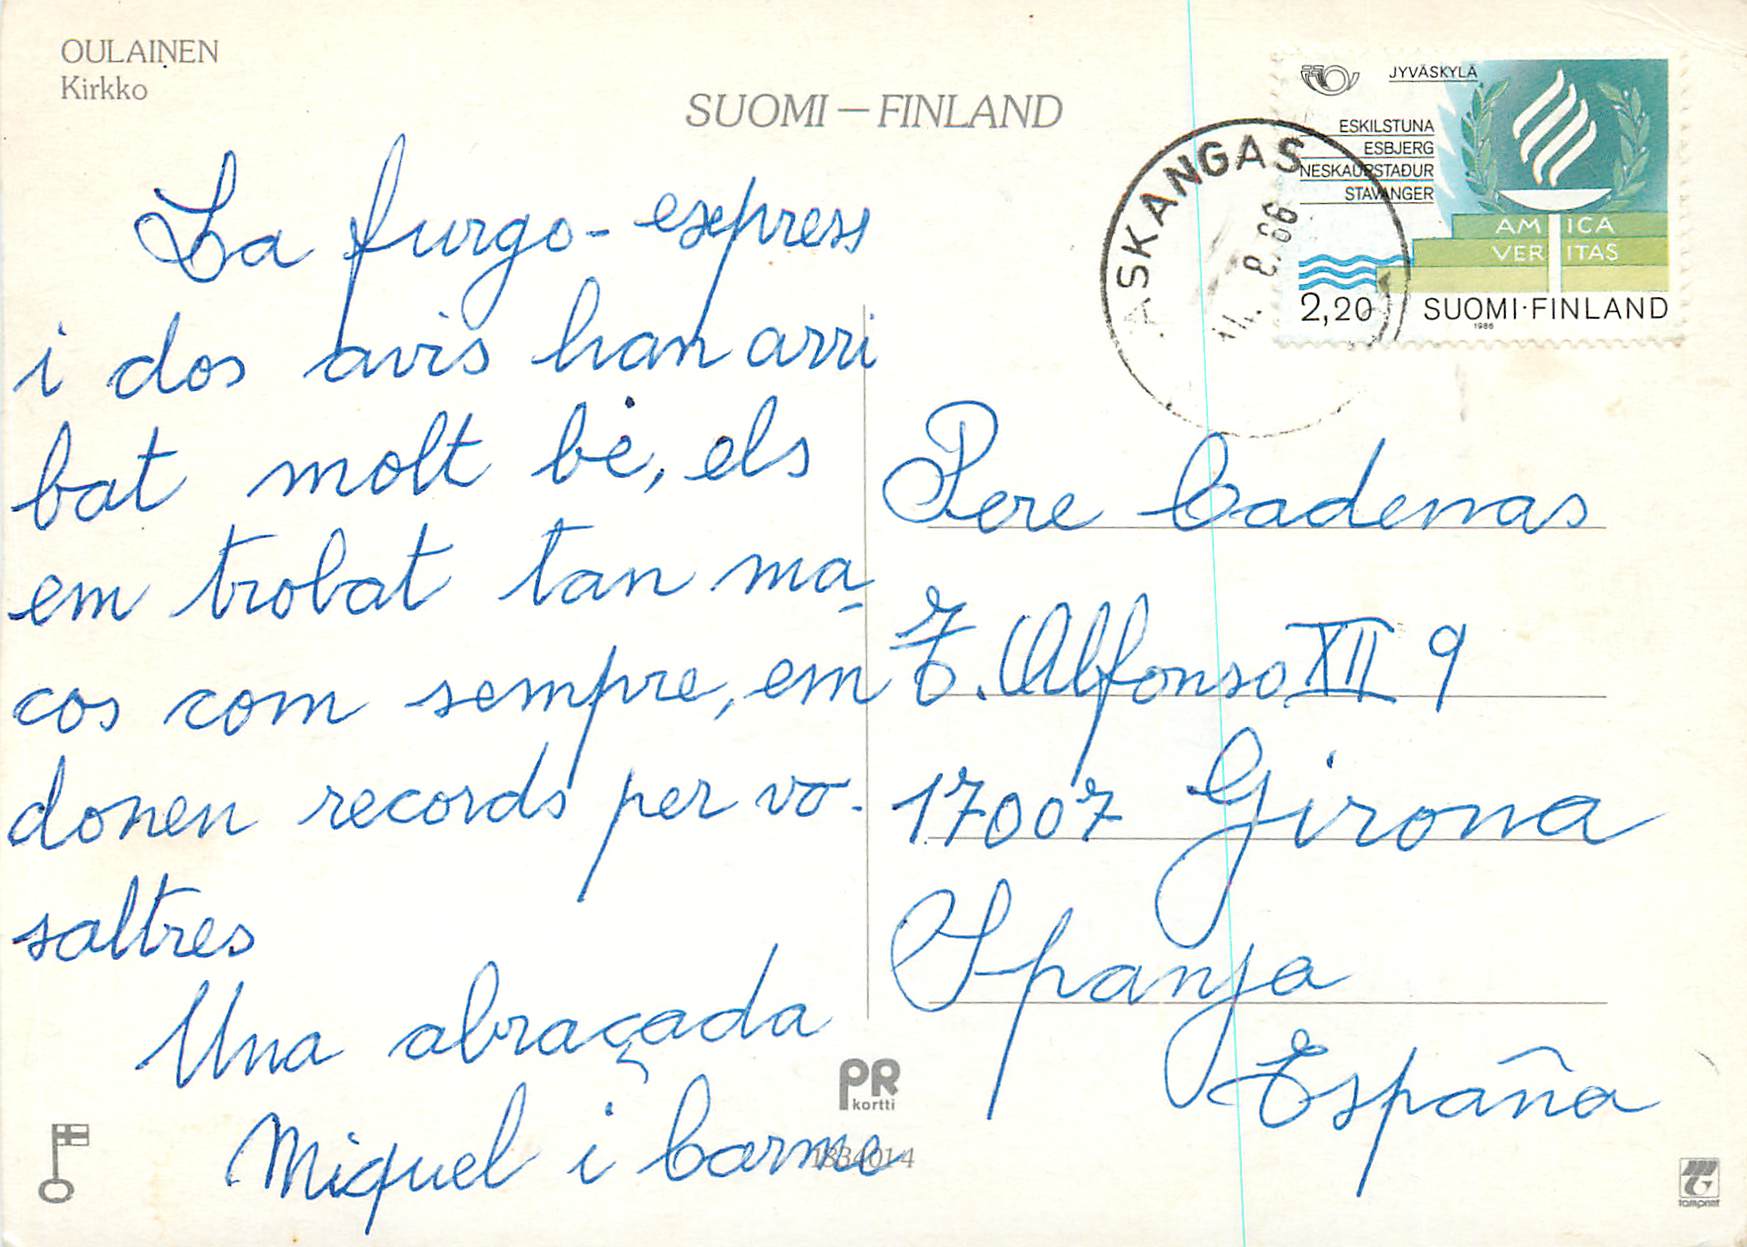 OULAINEN
Kirkko
SUOMI — FINLAND
La furgo-express
i dos avis han arri
bat molt bé, els
em trobat tan ma-
cos com sempre, em
donen records per vo-
saltres
Una abraçada
Miquel i Carme
JYVÄSKYLÄ
ESKILSTUNA
ESBJERG
NESKAUPSTAÐUR
STAVANGER
AMICA
VERITAS
2,20 SUOMI·FINLAND
1986
ASKANGAS
8.86
Pere Cadenas
Alfonso XII 9
17007 Girona
Spanja
España
PR
kortti
1334014
tamprint